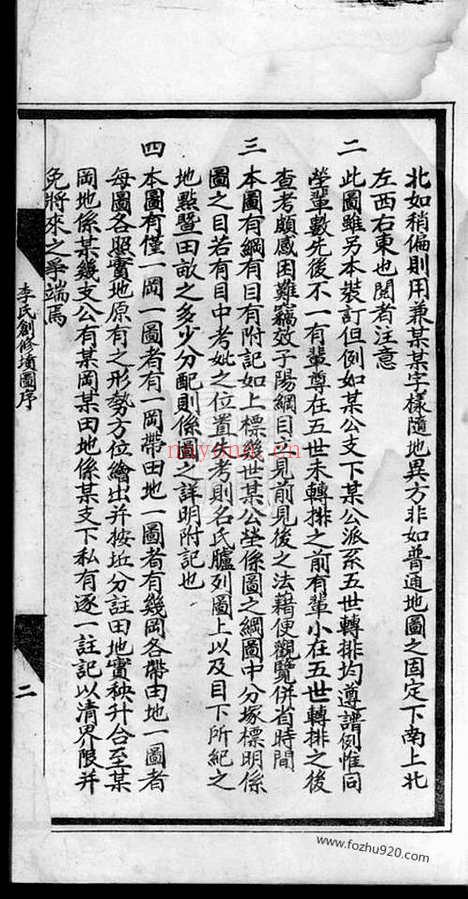 北如稍偏則用兼某某字樣隨地異方非如普通地圖之固定下南上北
左西右東也閱者注意
二 此圖雖另本裝訂但例如某公支下某公派系五世轉排均遵譜例惟同
塋輩數先後不一有輩尊在五世未轉排之前有輩小在五世轉排之後
查考頗感困難竊效子陽綱目立見前見後之法藉便觀覽併省時間
三 本圖有綱有目有附記如上標幾世某公塋係圖之綱圖中分塚標明係
圖之目若有目中考妣之位置失考則名氏臚列圖上以及目下所紀之
地點暨田畝之多少分配則係圖之詳明附記也
四 本圖有僅一岡一圖者有一岡帶田地一圖者有幾岡各帶田地一圖者
每圖各照實地原有之形勢方位繪出并按坵分註田地實秧升合至某
岡地係某幾支公有某岡某田地係某支下私有逐一註記以清界限并
免將來之爭端焉
李氏創修墳圖序
二
nayona.cn
www.fozhu920.com